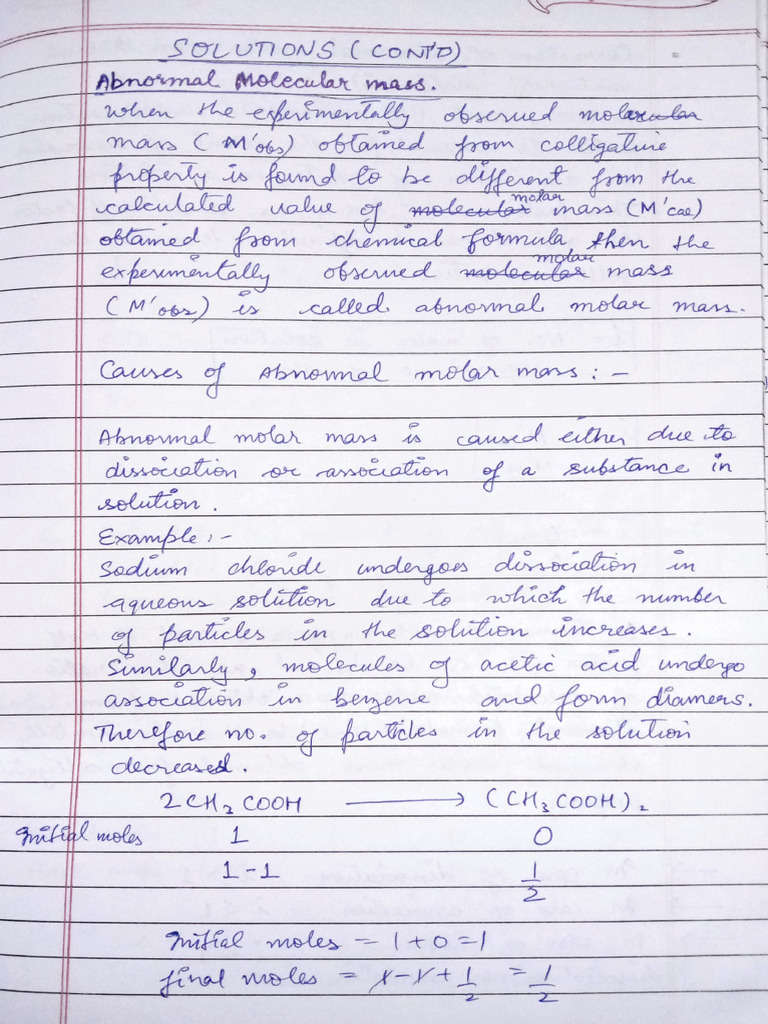 SOLUTIONS (CONT'D)
Abnormal Molecular mass.
When the experimentally observed molar
mass (M'obs) obtained from colligative
property is found to be different from the
calculated value of molar mass (M'cal)
obtained from chemical formula then the
experimentally observed molar mass
(M'obs) is called abnormal molar mass.
Causes of Abnormal molar mass : -
Abnormal molar mass is caused either due to
dissociation or association of a substance in
solution.
Example :-
Sodium chloride undergoes dissociation in
aqueous solution due to which the number
of particles in the solution increases.
Similarly, molecules of acetic acid undergo
association in benzene and form diamers.
Therefore no. of particles in the solution
decreased.
2CH3COOH ⟶ (CH3COOH)2
Initial moles 1 0
1-1 1/2
Initial moles = 1+0=1
final moles = 1-1+1/2 = 1/2